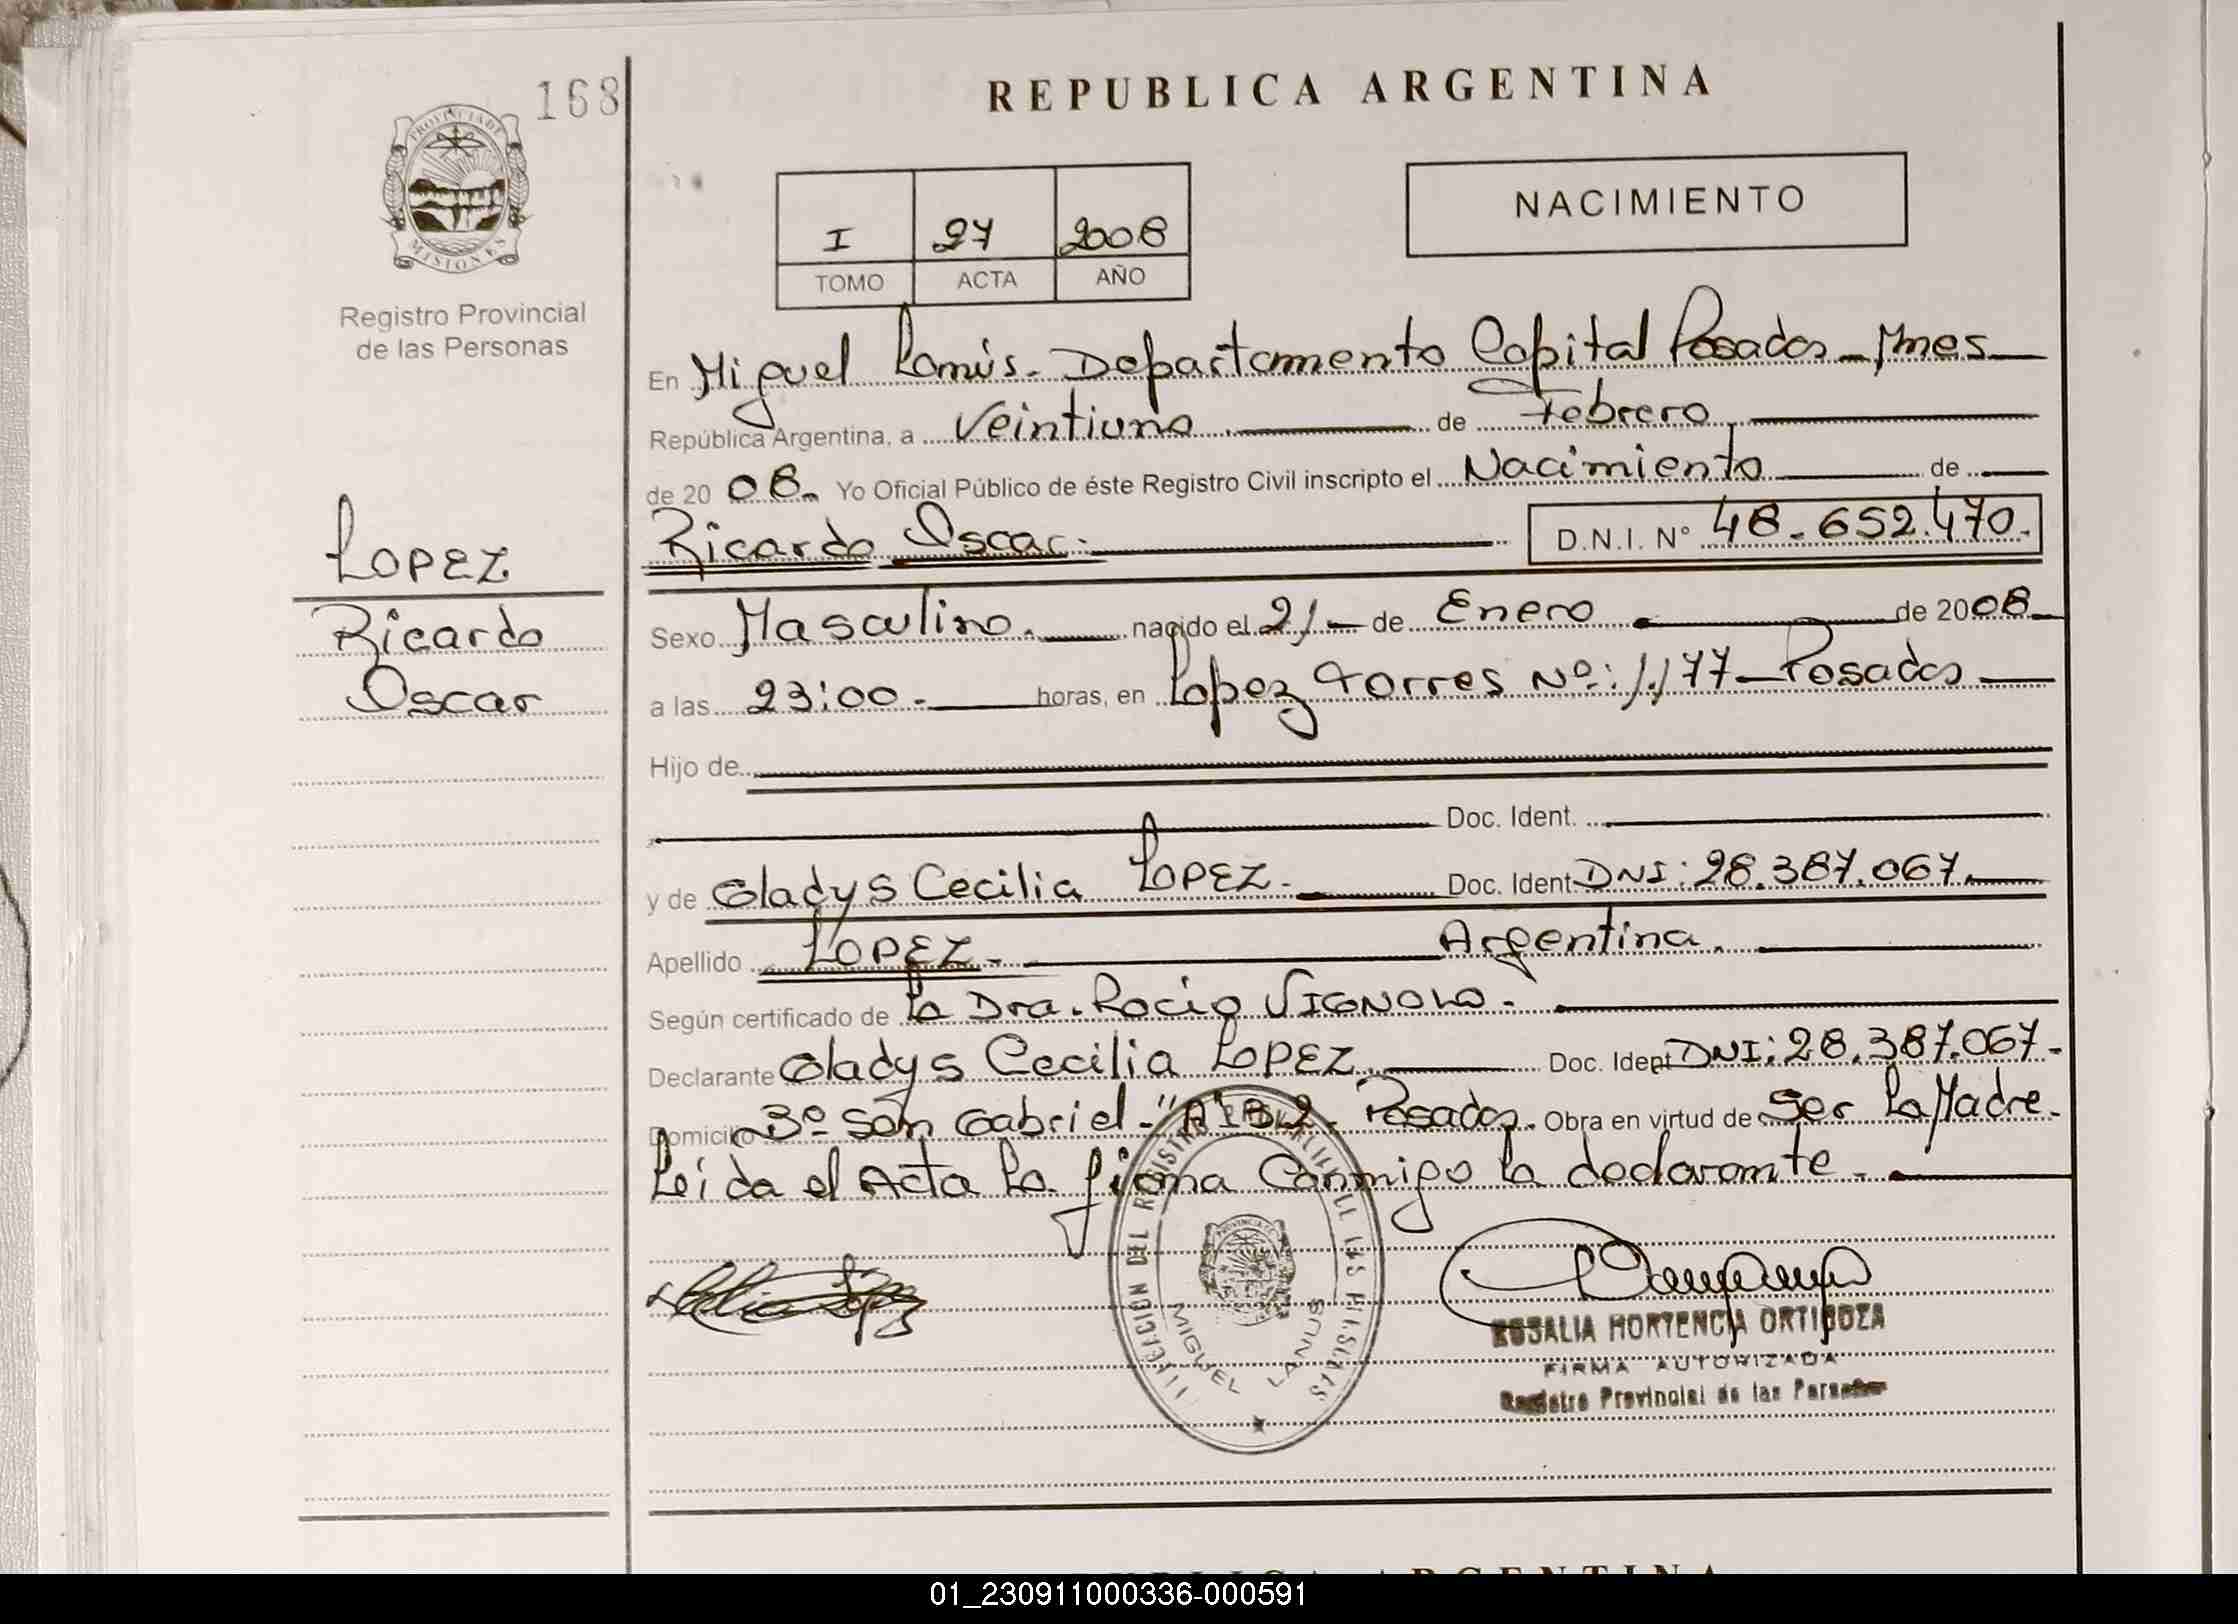 168
REPUBLICA ARGENTINA
PROVINCIA DE
MISIONES
Registro Provincial
de las Personas
I 27 2008
TOMO ACTA AÑO
NACIMIENTO
En Miguel Lanús. Departamento Capital Posadas - Mnes
República Argentina, a Veintiuno de Febrero
de 20 08. Yo Oficial Público de éste Registro Civil inscripto el Nacimiento de
Ricardo Oscar. D.N.I. Nº 48.652.470.
LOPEZ
Ricardo
Oscar
Sexo Masculino. nacido el 21 - de Enero de 2008
a las 23:00. horas, en Lopez Torres Nº: 1.177 - Posadas
Hijo de
Doc. Ident.
y de Gladys Cecilia LOPEZ. Doc. Ident DNI: 28.387.067.
Apellido LOPEZ. Argentina.
Según certificado de La Dra. Rocio VIGNOLO.
Declarante Gladys Cecilia LOPEZ. Doc. Ident DNI: 28.387.067.
Domicilio San Gabriel - Posadas. Obra en virtud de Ser La Madre.
Leída el Acta la firma Conmigo la declarante.
MIGUEL LANUS
ROSALIA HORTENCIA ORTIGOZA
FIRMA AUTORIZADA
Registro Provincial de las Personas
01_230911000336-000591